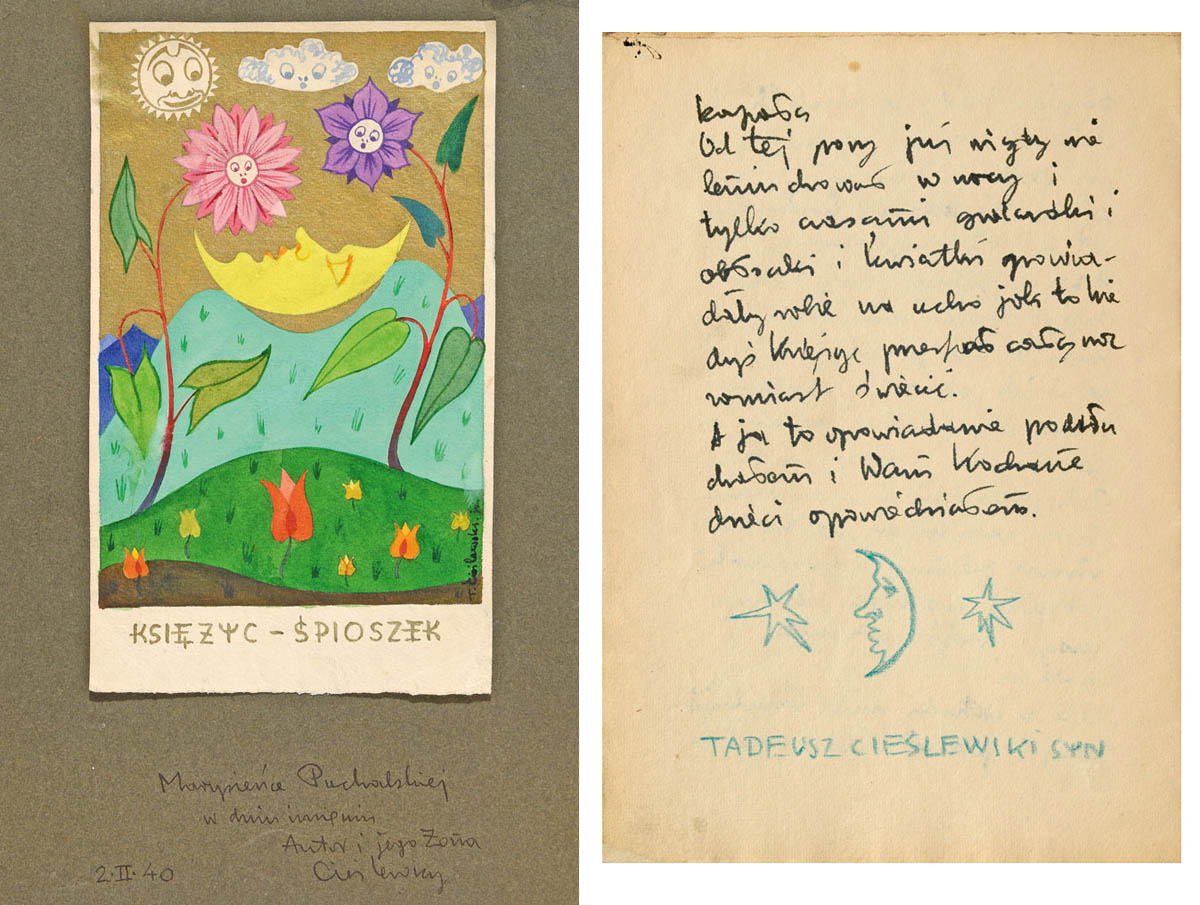 T. Cieślewski
KSIĘŻYC – ŚPIOSZEK
Marysieńce Puchalskiej
w dniu imienin
Autor i jego Żona
2·II·40 Cieślewscy
Od tej pory już nigdy nie
w nocy i
tylko czasami gwiazdki i
obłoczki i kwiatki opowia-
dały sobie na ucho jak to kie
dyś księżyc przespał całą noc
zamiast świecić.
A ja to opowiadanie podsłu
chałem i Wam Kochane
dzieci opowiedziałem.
TADEUSZ CIEŚLEWSKI SYN